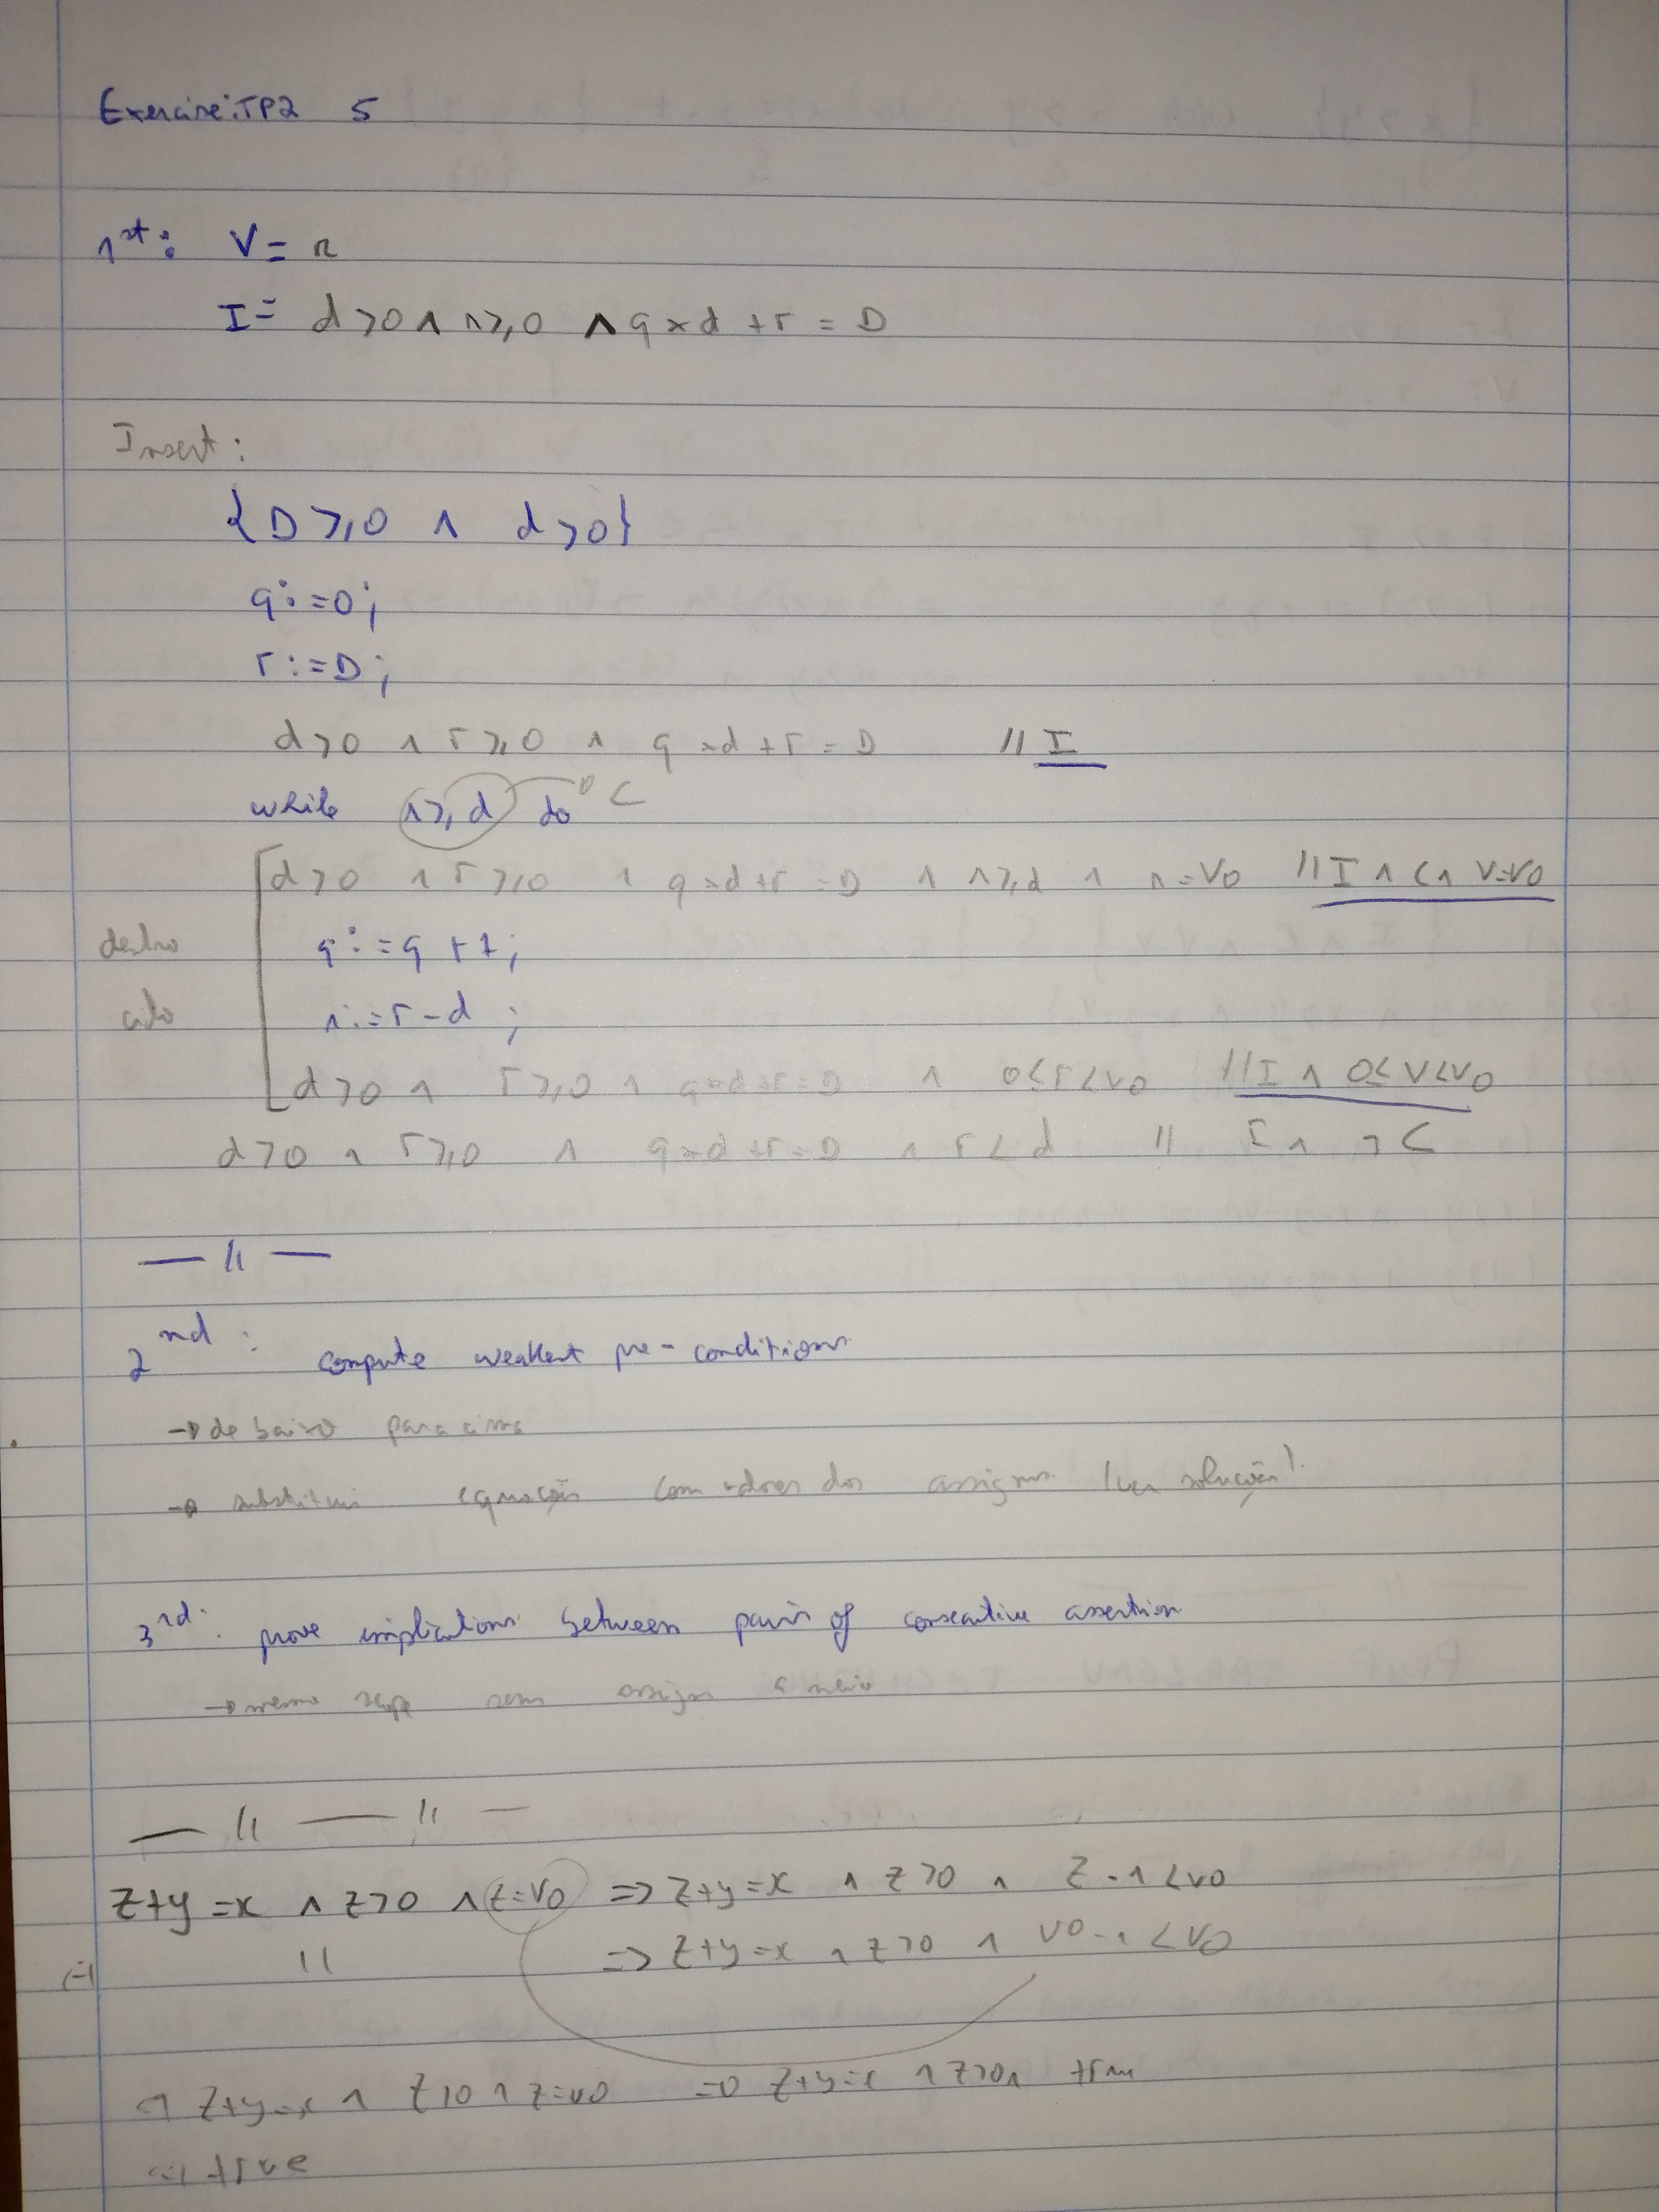 Exercise: TP2 5
1st: V = r
I = d > 0 ∧ r ≥ 0 ∧ q × d + r = D
Insert:
{D ≥ 0 ∧ d > 0}
q := 0;
r := D;
d > 0 ∧ r ≥ 0 ∧ q × d + r = D // I
while r ≥ d do → C
d > 0 ∧ r ≥ 0 ∧ q × d + r = D ∧ r ≥ d ∧ r = V0 // I ∧ C ∧ V = V0
dentro q := q + 1;
ciclo r := r - d ;
d > 0 ∧ r ≥ 0 ∧ q × d + r = D ∧ 0 ≤ r < V0 // I ∧ 0 ≤ V < V0
d > 0 ∧ r ≥ 0 ∧ q × d + r = D ∧ r < d // I ∧ ¬ C
— // —
2nd: compute weakest pre-conditions
→ de baixo para cima
→ substituir equações com valores dos assigns (ver solução).
3rd: prove implications between pairs of consecutive assertion
→ mesmo sem assigns a meio
— // — // —
z + y = x ∧ z > 0 ∧ z = V0 => z + y = x ∧ z > 0 ∧ z - 1 < V0
(=) // => z + y = x ∧ z > 0 ∧ V0 - 1 < V0
(=) z + y = x ∧ z > 0 ∧ z = V0 => z + y = x ∧ z > 0 ∧ true
(=) true